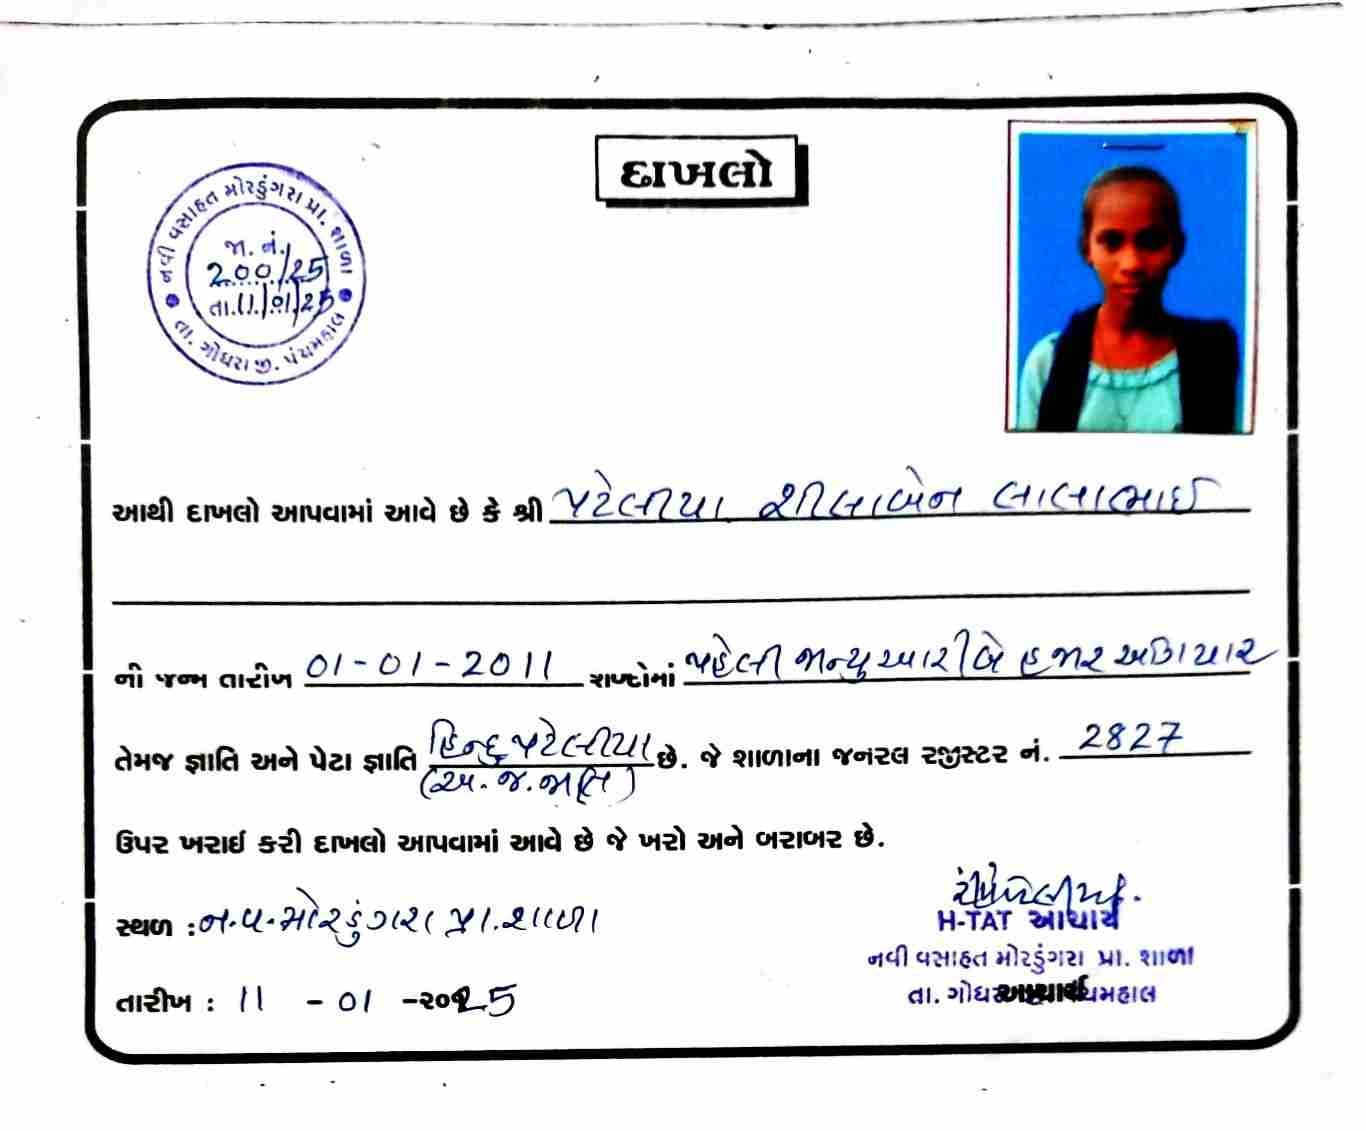 દાખલો
નવી વસાહત મોરડુંગરા પ્રા. શાળા
જા. નં.
200/25
તા.11/01/25
તા. ગોધરા જી. પંચમહાલ
આથી દાખલો આપવામાં આવે છે કે શ્રી પટેલીયા શીલાબેન લાલાભાઈ
ની જન્મ તારીખ 01-01-2011 શબ્દોમાં પહેલી જાન્યુઆરી બે હજાર અગિયાર
તેમજ જ્ઞાતિ અને પેટા જ્ઞાતિ હિન્દુ પટેલીયા છે. જે શાળાના જનરલ રજીસ્ટર નં. 2827
(અ.જ.જાતિ)
ઉપર ખરાઈ કરી દાખલો આપવામાં આવે છે જે ખરો અને બરાબર છે.
સ્થળ : ન.વ.મોરડુંગરા પ્રા.શાળા
H-TAT આચાર્ય
નવી વસાહત મોરડુંગરા પ્રા. શાળા
તારીખ : 11 - 01 -૨૦25
તા. ગોધરા આચાર્ય પંચમહાલ